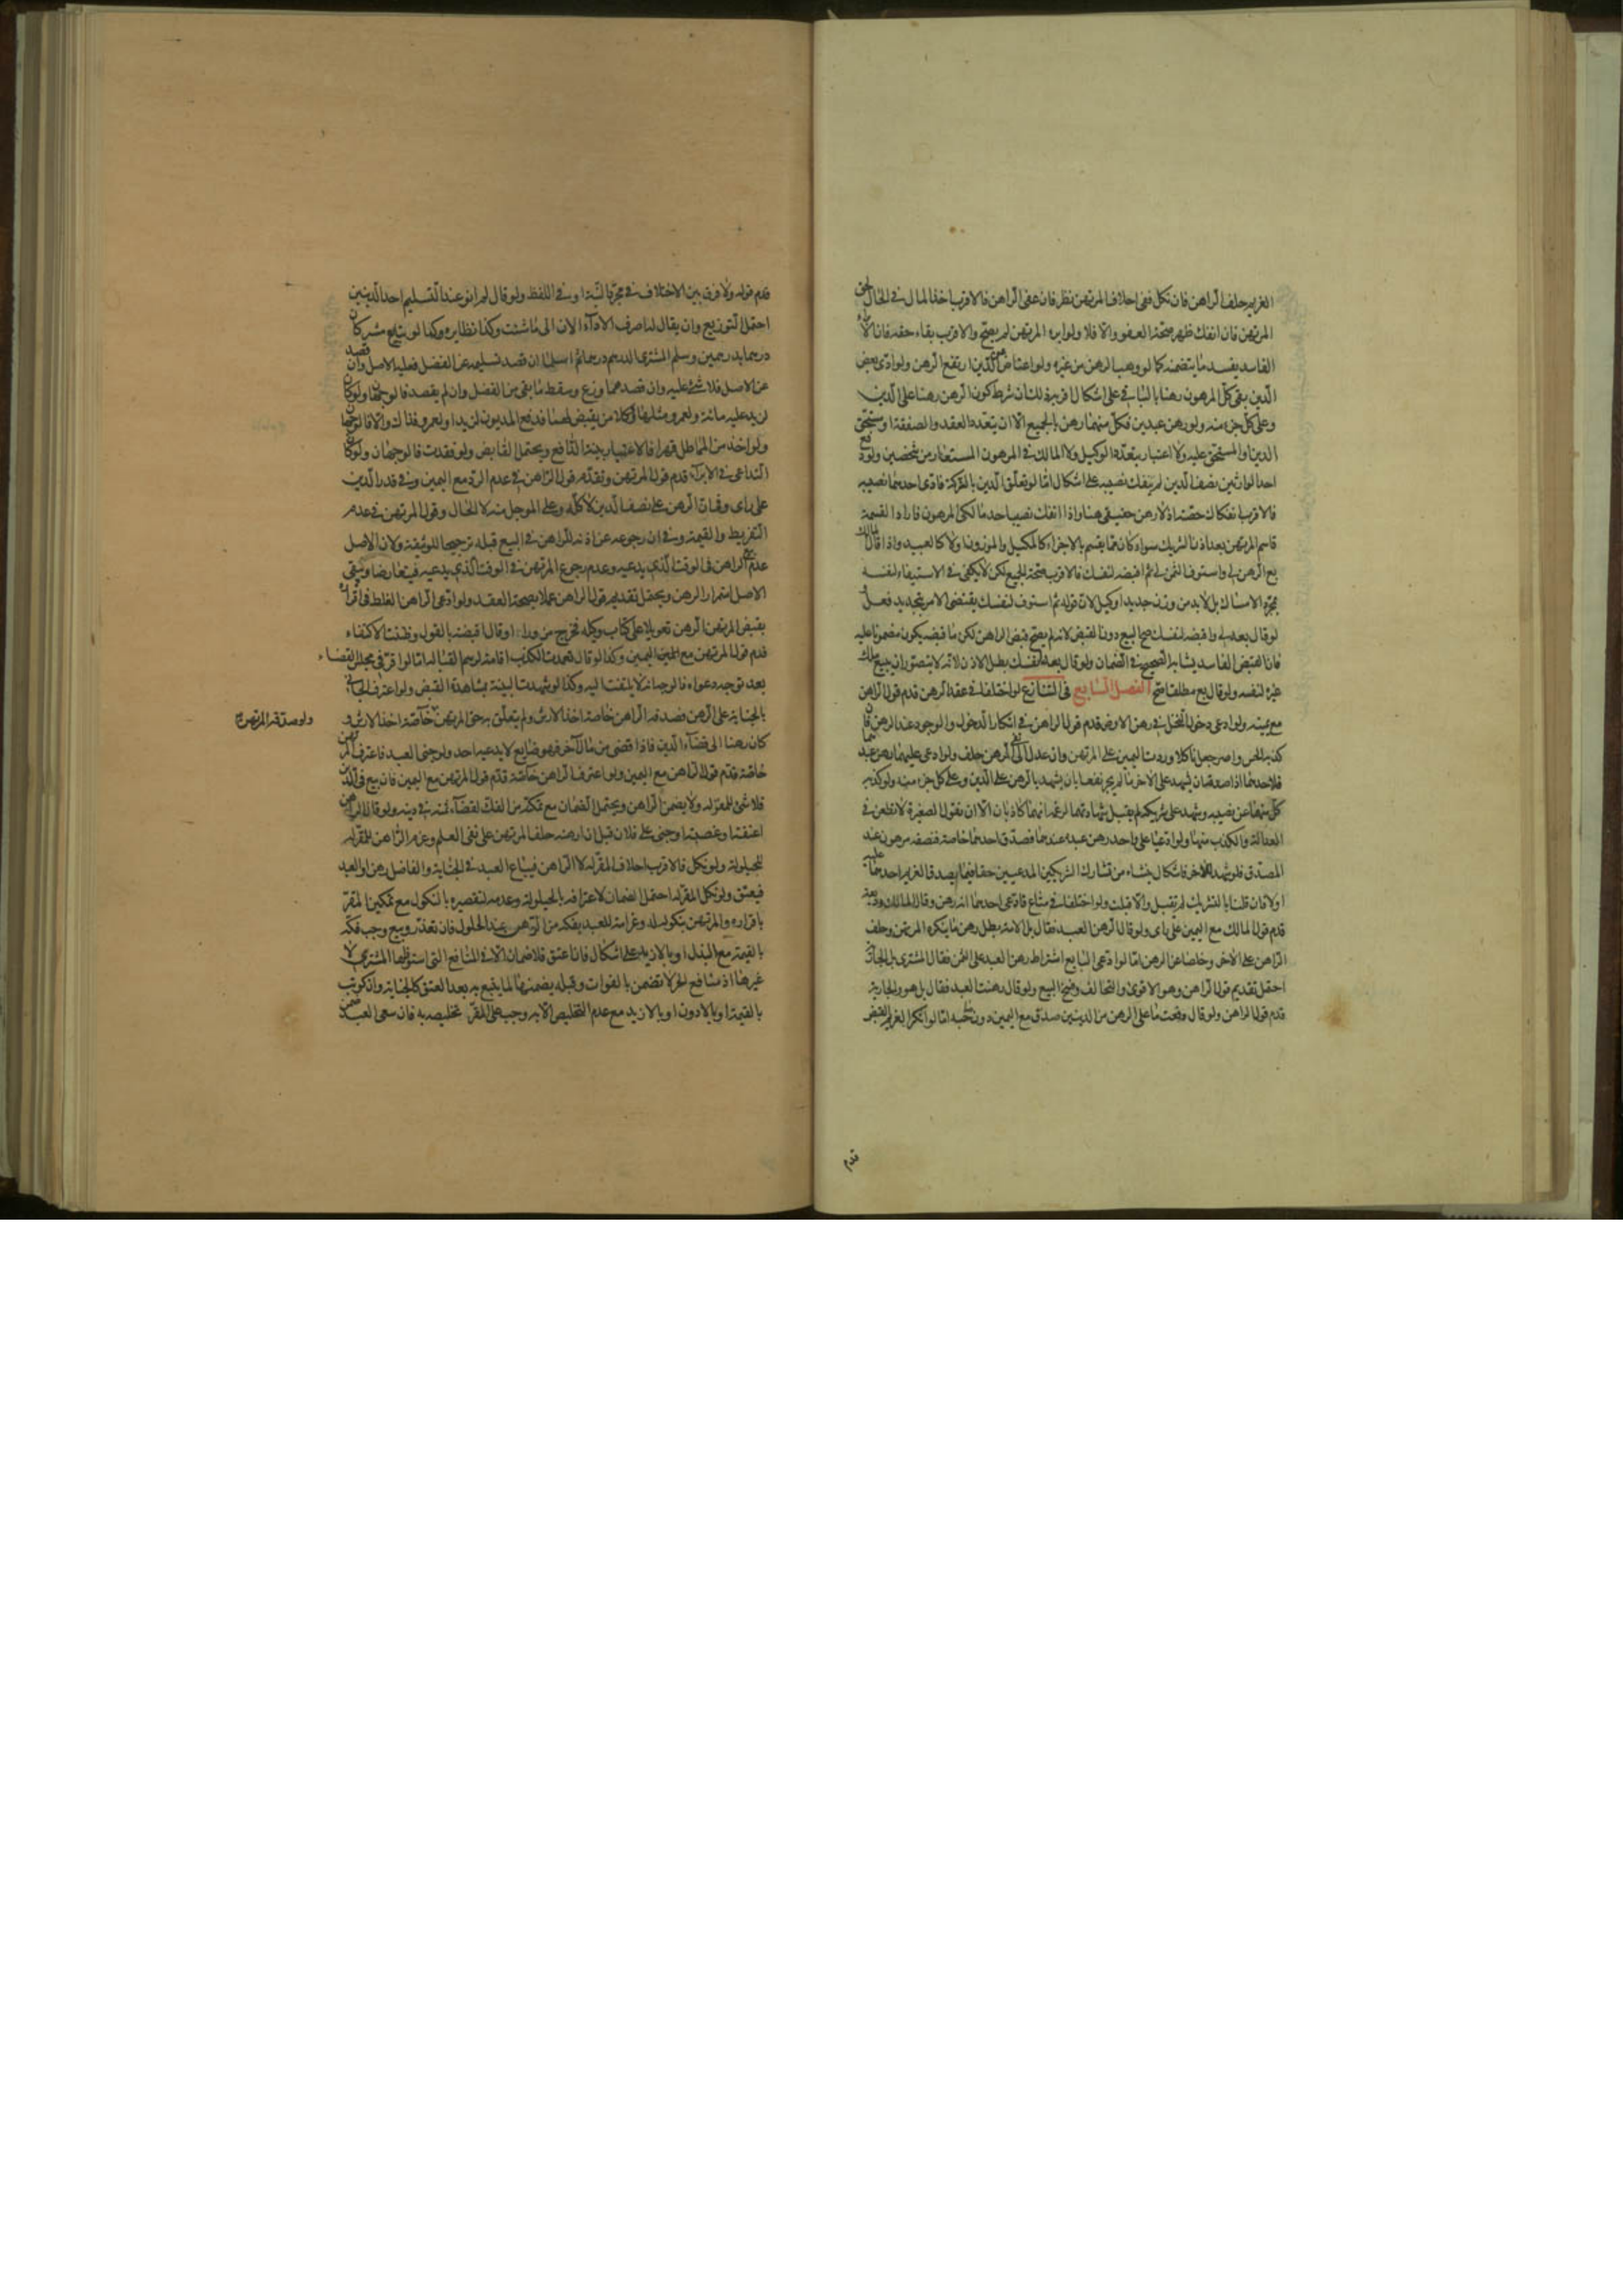 الغريم حلف الراهن فان نكل ففى احلاف المرتهن نظر فان عفى الراهن فالاقرب اخذ المال فى الحال لحق
المرتهن فان انفك ظهر صحة العفو والا فلا ولو ابرء المرتهن لم يصح والاقرب بقاء حقه فان الابراء
الفاسد يفسد ما يتضمنه كما لو وهب الرهن من غيره ولو اعتاض عن الدين ارتفع الرهن ولو ادى بعض
الدين بقى كل المرهون رهنا بالباقى على اشكال اقربه ذلك ان شرط كون الرهن رهنا على الدين
وعلى كل جزء منه ولو رهن عبدين فكل منهما رهن بالجميع الا ان يتعدد العقد او الصفقة او مستحق
الدين او المستحق عليه ولا اعتبار بتعدد الوكيل ولا المالك فى المرهون المستعار من شخصين ولو دفع
احد الوارثين نصف الدين لم ينفك نصيبه على اشكال اما لو تعلق الدين بالتركة فادى احدهما نصيبه
فالاقرب انفكاك حصته اذ لا رهن حقيقى هنا واذا انفك نصيب احد مالكى المرهون فاراد القسمة
قاسم المرتهن بعد اذن الشريك سواء كان مما يقسم بالاجزاء كالمكيل والموزون او لا كالعبيد واذا قال المالك
بع الرهن لى واستوف الثمن لى ثم اقبضه لنفسك فالاقرب صحة الجميع لكن لا يكفى فى الاستيفاء لنفسه
مجرد الامساك بل لابد من وزن جديد او كيل لان قوله ثم استوف لنفسك يقتضى الامر بتجديد فعل
لو قال بعه لى واقبضه لنفسك صح البيع دون القبض لانه لم يصح قبض الراهن لكن ما قبضه يكون مضمونا عليه
فان القبض الفاسد يشابه الصحيح فى الضمان ولو قال بعه لنفسك بطل الاذن لانه لا يتصور ان يبيع ملك
غيره لنفسه ولو قال بع مطلقا صح الفصل السابع فى التنازع لو اختلفا فى عقد الرهن قدم قول الراهن
مع يمينه ولو ادعى دخول النخل فى رهن الارض قدم قول الراهن فى انكار الدخول او الوجود عند الرهن فان
كذبه الحس واصر جعل ناكلا وردت اليمين على المرتهن وان عدل الى نفى الرهن حلف ولو ادعى عليهما رهن عبدهما
فلاحدهما اذا صدقه ان يشهد على الاخر ما لم يجر نفعا بان يشهد بالرهن على الدين وعلى كل جزء منه ولو كذبه
كل منهما عن نصيبه وشهد على شريكه لم يقبل شهادتهما لزعمه انهما كاذبان الا ان نقول الصغيرة لا تطعن فى
العدالة والكذب منها ولو ادعيا على واحد رهن عبده عندهما فصدق احدهما خاصة فنصفه مرهون عند
المصدق فلو شهد للاخر فاشكال ينشاء من تشارك الشريكين المدعيين حقا فيما يصدق الغريم احدهما عليه
اولا فان قلنا بالتشريك لم تقبل والا قبلت ولو اختلفا فى متاع فادعى احدهما انه رهن وقال المالك وديعة
قدم قول المالك مع اليمين على راى ولو قال الرهن العبد فقال بل الامة بطل رهن ما ينكره المرتهن وحلف
الراهن على الاخر وخلصا عن الرهن اما لو ادعى البايع اشتراط رهن العبد على الثمن فقال المشترى بل الجارية
احتمل تقديم قول الراهن وهو الاقوى والتحالف وفسخ البيع ولو قال رهنت العبد فقال بل هو والجارية
قدم قول الراهن ولو قال دفعت ما على الرهن من الدينين صدق مع اليمين دون صاحبه اما لو انكر الغريم القبض
قدم
قدم قوله ولا فرق بين الاختلاف فى مجرد النية او فى اللفظ ولو قال لم انو عند التسليم احد الدينين
احتمل التوزيع وان يقال له اصرف الاداء الان الى ما شئت وكذا نظايره وكذا لو يتبايع مشركان
درهما بدرهمين وسلم المشترى الدرهم درهما ثم اسلما ان قصد تسليمه عن الفضل فعليه الاصل وان قصد
عن الاصل فلا شئ عليه وان قصدهما وزع وسقط ما بقى من الفضل وان لم يقصد فالوجهان ولو كان
لزيد عليه مائة ولعمرو مثلها ووكلا من يقبض لهما فدفع المديون لزيد او لعمرو فذاك والا فالوجهان
ولو اخذ من المماطل قهرا فالاعتبار بنية الدافع ويحتمل القابض ولو فقدت فالوجهان ولو كان
التداعى فى الابراء قدم قول المرتهن وتقدم قول الراهن فى عدم الرد مع اليمين وفى قدر الدين
على راى وفى ان الرهن على نصف الدين لا كله وعلى الموجل منه لا الحال وقول المرتهن فى عدم
التفريط والقيمة وفى ان رجوعه عن اذنه للراهن فى البيع قبله ترجيحا للوثيقة ولان الاصل
عدم بيع الراهن فى الوقت الذى يدعيه وعدم رجوع المرتهن فى الوقت الذى يدعيه فيتعارضا وتبقى
الاصل استمرار الرهن ويحتمل تقديم قول الراهن عملا بصحة العقد ولو ادعى الراهن الغلط فى اقراره
بقبض المرتهن الرهن تعويلا على كتاب وكيله فخرج مزورا او قال اقبضته بالقول وظننت الاكتفاء
قدم قول المرتهن مع اليمين وكذا لو قال تعمدت الكذب اقامة لرسم القبالة اما لو اقر فى مجلس القضاء
بعد توجه دعواه فالوجه انه لا يلتفت اليه وكذا لو شهدت البينة بمشاهدة القبض ولو اعترف الجانى
بالجناية على الرهن فصدقه الراهن خاصة اخذ الارش ولم يتعلق به حق المرتهن خاصة اخذ الارش و
ولو صدقه المرتهن
كان رهنا الى قضاء الدين فاذا قضى من مال اخر فهو ضايع لا يدعيه احد ولو جنى العبد فاعترف المرتهن
خاصة قدم قول الراهن مع اليمين ولو اعترف الراهن خاصة قدم قول المرتهن مع اليمين فان بيع فى الدين
فلا شئ للمقر له ولا يضمن الراهن ويحتمل الضمان مع تمكنه من الفك لقضاء ثمنه فى دينه ولو قال الراهن
اعتقته او غصبته او جنى على فلان قبل ان ارهنه حلف المرتهن على نفى العلم وغرم الراهن للمقر له
للحيلولة ولو نكل فالاقرب احلاف المقر له لا الراهن فيباع العبد فى الجناية والفاضل رهن او العبد
فيعتق ولو نكل المقر له احتمل الضمان لاعترافه بالحيلولة وعدمه لتقصيره بالنكول مع تمكين المقر
باقراره والمرتهن بنكوله له وغرامته للعبد بفكه من الرهن عند الحلول فان تعذر وبيع وجب فكه
بالقيمة مع البذل او بالازيد على اشكال فاذا عتق فلا ضمان الا فى المنافع التى استوفاها المشترى لا
غيرها اذ منافع الحر لا تضمن بالفوات وقبله يضمنها لما يتبع به بعد العتق كالجناية وان كوتب
بالقيمة او بالادون او بالازيد مع عدم التخليص الا به وجب على المقر تخليصه به فان سعى العبد ضمن